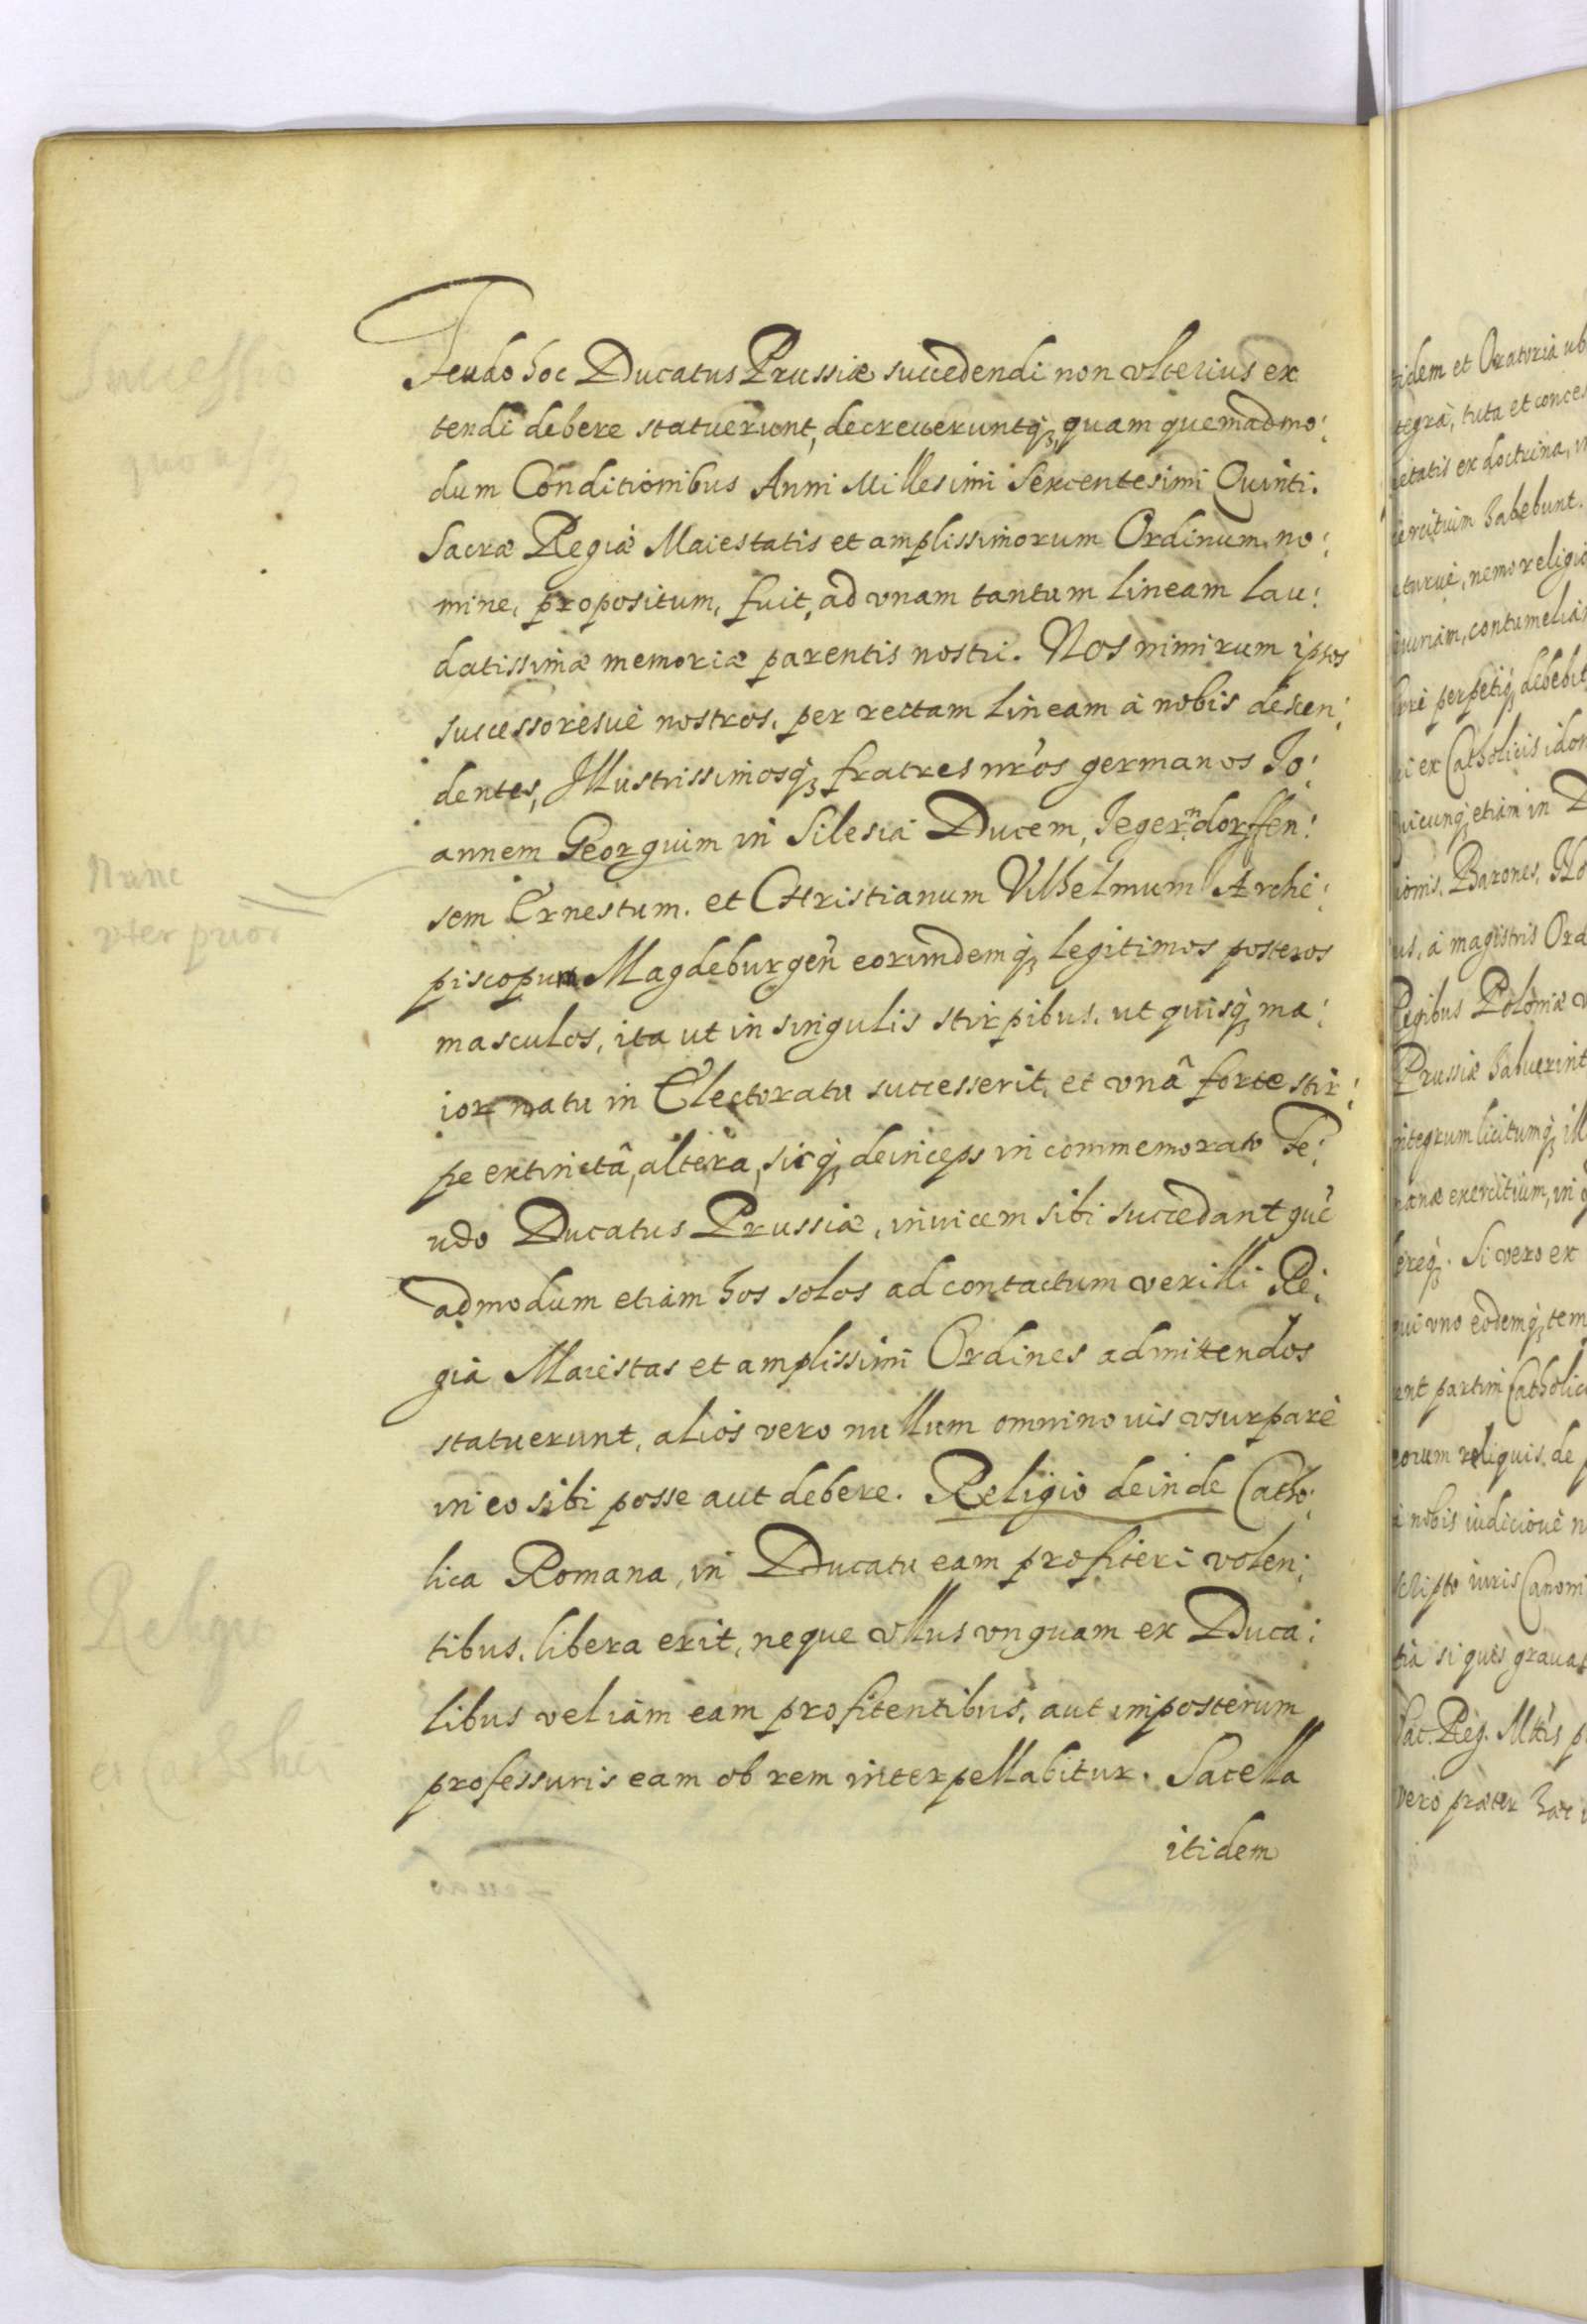 Feudo hoc Ducatus Prussiæ succedendi non vlterius ex
tendi debere statuerunt, decreueruntq́ȝ, quam quemadmo:
dum Conditionibus Anni Millesimi Sexcentesimi Quinti.
Sacræ Regiæ Maiestatis et amplissimorum Ordinum no:
mine, propositum, fuit, ad vnam tantum lineam lau:
datissimæ memoriæ parentis nostri. Nos nimirum ipsos
successoresuè nostros, per rectam lineam à nobis descen:
dentes, Illustrissimosq́ȝ fratres nr̃os germanos Jo:
annem Georgium in Silesia Ducem, Jegerndorffen:
sem Ernestum. et CHristianum Vilhelmum Archi:
piscopum Magdeburgen̄ eorundemq́ȝ legitimos posteros
masculos, ita ut in singulis stirpibus. ut quisq́ȝ ma:
ior natu in Electoratu successerit, et vnâ forte stir:
pe extinctâ, altera, sicq́ȝ deinceps in commemorato Fe:
udo Ducatus Prussiæ, inuicem sibi succedant quē
admodum etiam hos solos ad contactum vexilli Re:
gia Maiestas et amplissimi Ordines admittendos
statuerunt, alios vero nullum omnino uis vsurpare
in eo sibi posse aut debere. Religio deinde Catho:
lica Romana, in Ducatu eam profiteri volen:
tibus, libera erit, neque vllus vnquam ex Duca:
libus vel iam eam profitentibus, aut imposterum
professuris eam ob rem interpellabitur. Sacella
itidem
Successio
Nunc
vter prior
Religio
tidem et Oratoria ub
tegra, tuta et conces
ietatis ex doctrina,
ercitium habebunt.
nemo religio
iuriam, contumeliam
perpetiq́ȝ debebit
ex Catholicis idon
uicunq́ȝ etiam in D
ionis, Barones,
us, à magistris Ord
Regibus Poloniæ v
Prussiæ habuerint
ntegrum licitumq́ȝ ill
anæ exercitium, in
ereq́ȝ. Si vero ex
qui vno eodemq́ȝ tem
ent partim Catholic
eorum reliquis. de
à nobis iudicioue n
scripto iuris Canoni
tia si quis graua
Sac. Reg. Mttis p
vero præter hac